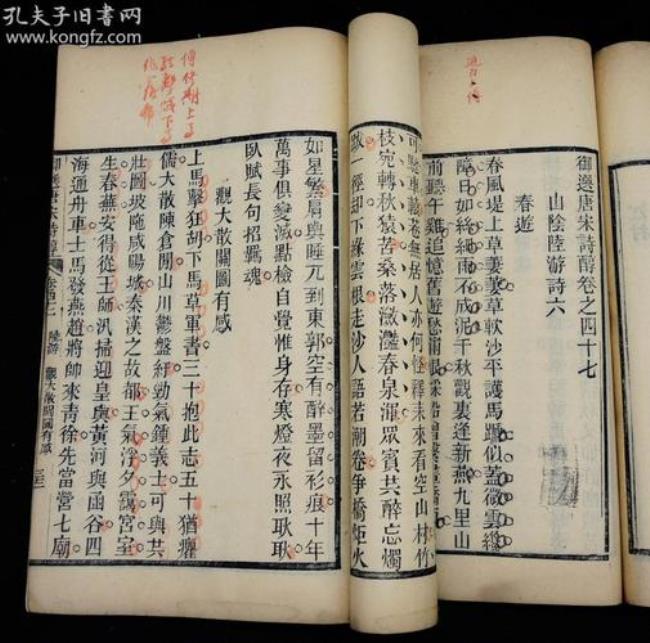 孔夫子旧书网
www.kongfz.com
御選唐宋詩醇卷之四十七
山陰陸游詩六
春遊
春風堤上草萋萋草軟沙平護馬蹄似蓋微雲纔
障日如絲細雨不成泥千秋觀裏逢新燕九里山
前聽午雞追憶舊遊愁
枝宛轉秋猿苦桑落瀲灩春泉渾眾賓共醉忘燭
跋一徑却下緣雲根走沙人語若潮卷爭橋炬火
如星繁肩輿睡兀到東郭空有醉墨留衫痕十年
萬事俱變滅點檢自覺惟身存寒燈夜永照耿耿
臥賦長句招羈魂
觀大散關圖有感
上馬擊狂胡下馬草軍書二十抱此志五十猶癯
儒大散陳倉間山川鬱盤紆勁氣鍾義士可與共
壯圖坡陁咸陽城秦漢之故都王氣浮夕靄宮室
生春蕪安得從王師汛掃迎皇輿黃河與函谷四
海通舟車士馬發燕趙將帥來青徐先當營七廟
御選唐宋詩醇
陸游
觀大散關圖有感